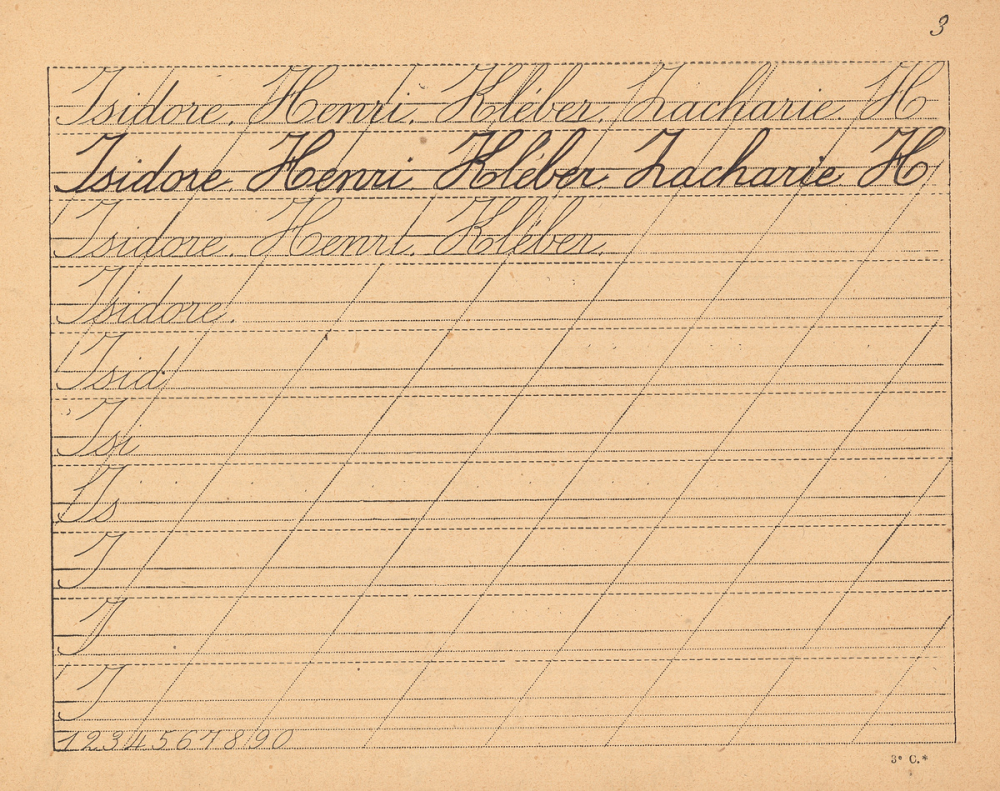 3
Isidore. Henri. Kléber. Zacharie. H
Isidore Henri Kléber Zacharie H
Isidore. Henri. Kléber.
Isidore.
Isid
Isi
Is
I
I
I
1 2 3 4 5 6 7 8 9 0
3e C.*